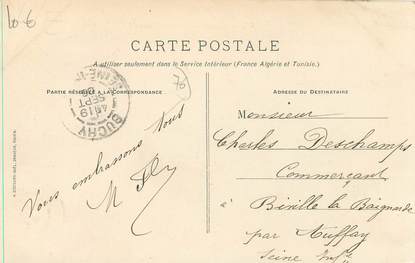 10 €
CARTE POSTALE
A utiliser seulement dans le Service Intérieur (France Algérie et Tunisie.)
PARTIE RÉSERVÉE A LA CORRESPONDANCE
ADRESSE DU DESTINATAIRE
70
BUCHY
19
SEPT
Vous embrassons tous
Monsieur
Charles Deschamps
Commerçant
à Biville la Baignarde
par Auffay
Seine Infre